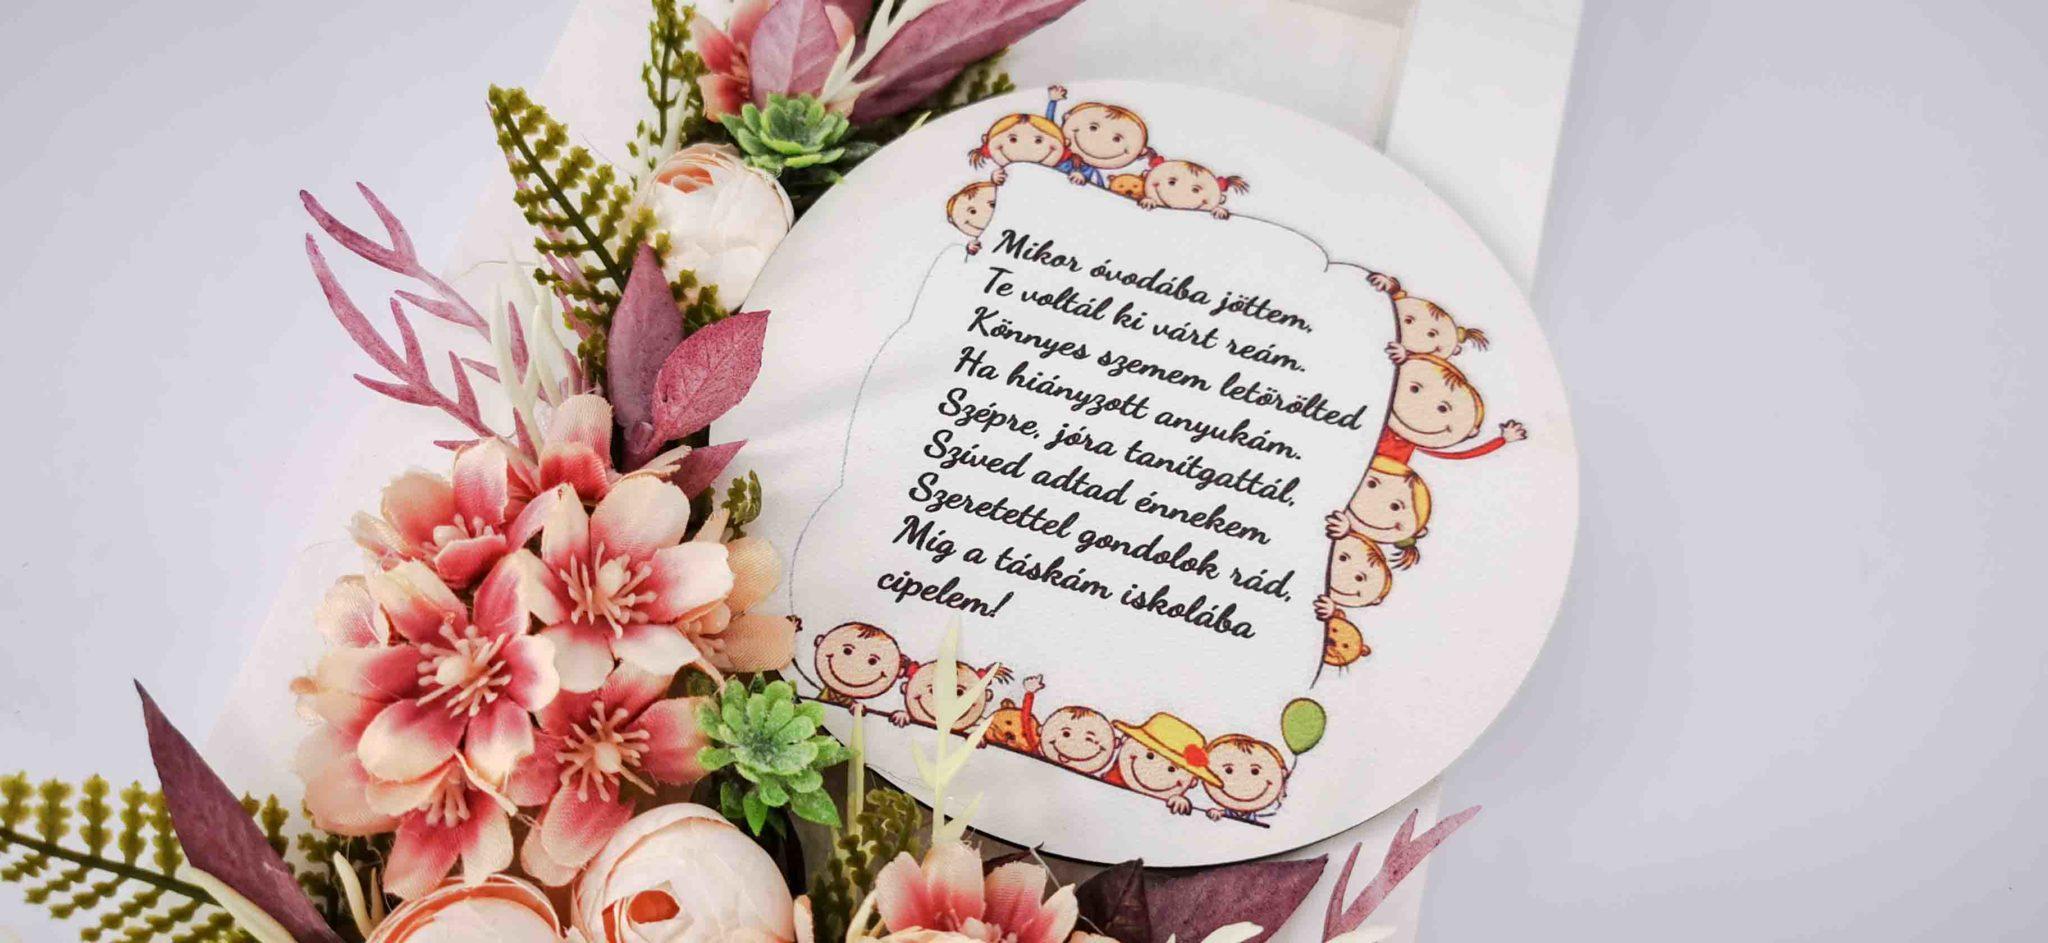 Mikor óvodába jöttem,
Te voltál ki várt reám.
Könnyes szemem letörölted
Ha hiányzott anyukám.
Szépre, jóra tanítgattál,
Szíved adtad énnekem
Szeretettel gondolok rád,
Míg a táskám iskolába
cipelem!